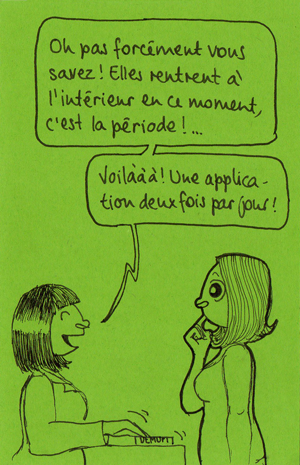 Oh pas forcément vous
savez! Elles rentrent à
l'intérieur en ce moment,
c'est la période!...
Voilààà! Une applica-
tion deux fois par jour!